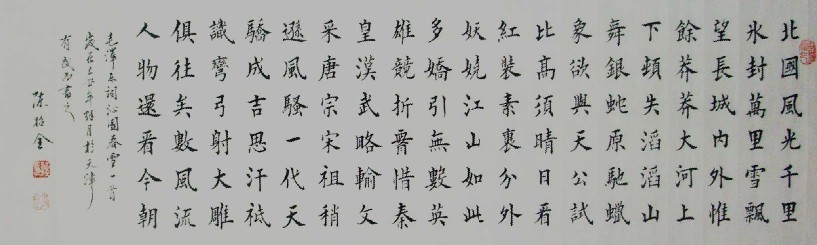 北國風光千里
氷封萬里雪飄
望長城內外惟
餘莽莽大河上
下頓失滔滔山
舞銀蛇原馳蠟
象欲與天公試
比高須晴日看
紅裝素裹分外
妖嬈江山如此
多嬌引無數英
雄競折腰惜秦
皇漢武略輸文
采唐宗宋祖稍
遜風騷一代天
驕成吉思汗祗
識彎弓射大雕
俱往矣數風流
人物還看今朝
毛澤東詞沁園春雪一首
歲在子年月於天津
有書之
陳金